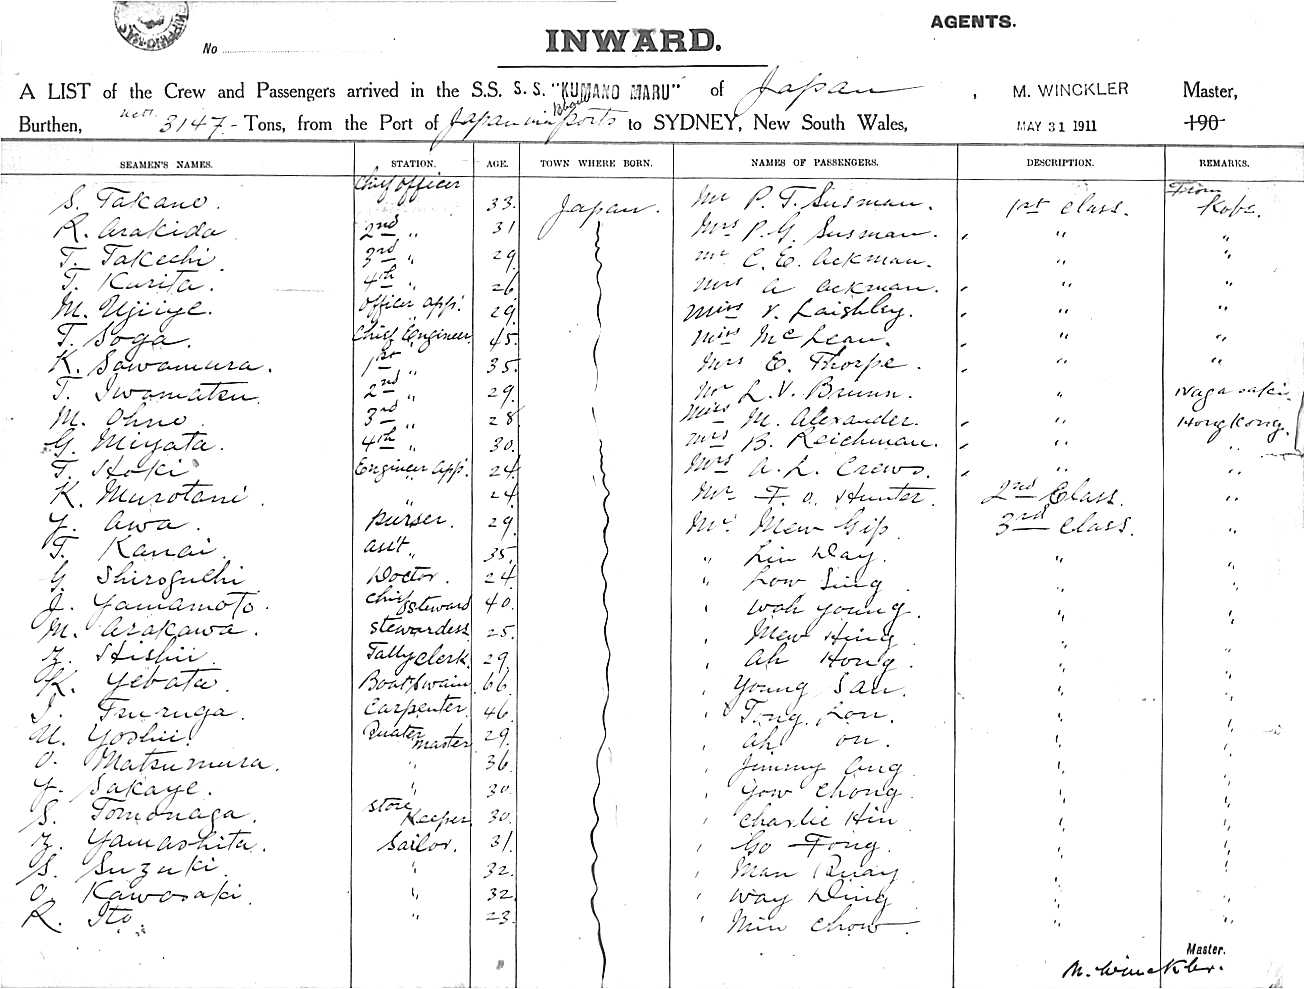 AGENTS.
No
INWARD.
A LIST of the Crew and Passengers arrived in the S.S. S. S. "KUMANO MARU" of Japan, M. WINCKLER Master,
Burthen, nett. 3147- Tons, from the Port of Japan via ports to SYDNEY, New South Wales, MAY 31 1911 190
SEAMEN'S NAMES. STATION. AGE. TOWN WHERE BORN. NAMES OF PASSENGERS. DESCRIPTION. REMARKS.
S. Takano. Chief officer 33. Japan. Mr P. T. Susman. 1st class. From Kobe.
R. Arakida 2nd " 31 Mrs P. G. Susman. " "
T. Takechi 3rd " 29 Mr C. E. Ackman. " "
T. Kurita. 4th " 26 Mrs A Ackman. " "
M. Ujiiye. officer app. 29. Miss V. Laishley. " "
T. Soga. Chief Engineer 45. Miss McLean. " "
K. Sawamura. 1st " 35. Mrs E. Thorpe. " "
T. Iwamatsu. 2nd " 29. Mr L. V. Brunn. " Nagasaki.
M. Ohno 3rd " 28 Miss M. Alexander. " Hongkong.
G. Miyata. 4th " 30. Mrs B. Reichman. " "
T. Hoki Engineer app. 24. Mrs A. L. Crews. " "
K. Murotani " 24 Mr F. O. Hunter 2nd Class. "
Y. Awa. Purser. 29 Mr. Mew Gip 3rd Class. "
T. Kanai. ass't " 35. " Lin Day. " "
G Shiroguchi Doctor. 24. " Low Sing " "
J. Yamamoto. chief steward 40. " Wah Young. " "
M. Arakawa. stewardess 25. " Mew Hing " "
Z. Hishii. Tally clerk. 29. " Ah Hong. " "
K. Yebata. Boatswain 66 " Young San. " "
J. Tsuruga. Carpenter. 46 " Tong Lon. " "
U. Yoshii. Quater master 29. " Ah On. " "
O. Matsumura. " 36 " Jimmy Ung " "
Y. Sakaye. " 30 " Yow Chong. " "
S. Tomonaga. store Keeper. 30. " Charlie Hin " "
Z. Yamashita. Sailor. 31. " Go Fong. " "
S. Suzuki. " 32. " Man Quay " "
O. Kawasaki. " 32. " Way Ding " "
R. Ito. " 23. " Min Chow. " "
Master.
M. Winckler.